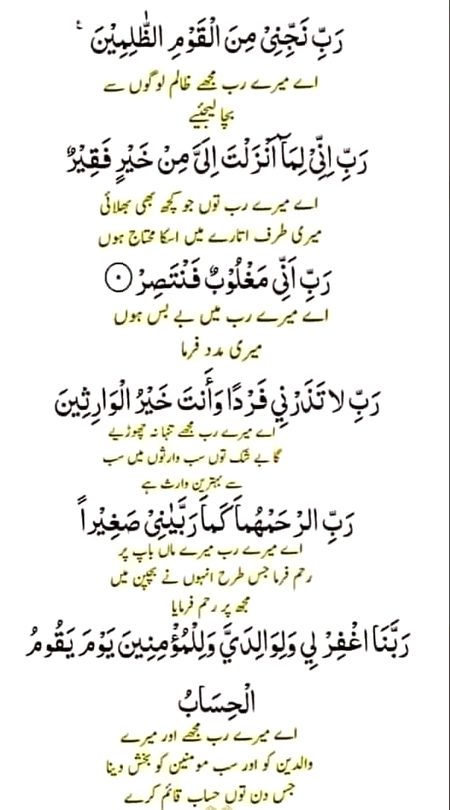 رَبِّ نَجِّنِیْ مِنَ الْقَوْمِ الظّٰلِمِیْنَ ۠
اے میرے رب مجھے ظالم لوگوں سے
بچا لیجئیے
رَبِّ اِنِّیْ لِمَاۤ اَنْزَلْتَ اِلَیَّ مِنْ خَیْرٍ فَقِیْرٌ
اے میرے رب توں جو کچھ بھی بھلائی
میری طرف اتارے میں اسکا محتاج ہوں
رَبِّ اَنِّیْ مَغْلُوْبٌ فَنْتَصِرْ ۝۰
اے میرے رب میں بے بس ہوں
میری مدد فرما
رَبِّ لا تَذَرْنِي فَرْدًا وَأَنتَ خَيْرُ الْوَارِثِينَ
اے میرے رب مجھے تنہا نہ چھوڑیے
گا بے شک توں سب وارثوں میں سب
سے بہترین وارث ہے
رَبِّ الرْحَمْهُمَا كَمَا رَبَّيٰنِیْ صَغِيْراً
اے میرے رب میرے ماں باپ پر
رحم فرما جس طرح انہوں نے بچپن میں
مجھ پر رحم فرمایا
رَبَّنَا اغْفِرْ لِي وَلِوَالِدَيَّ وَلِلْمُؤْمِنِينَ يَوْمَ يَقُومُ
الْحِسَابُ
اے میرے رب مجھے اور میرے
والدین کو اور سب مومنین کو بخش دینا
جس دن توں حساب قائم کرے